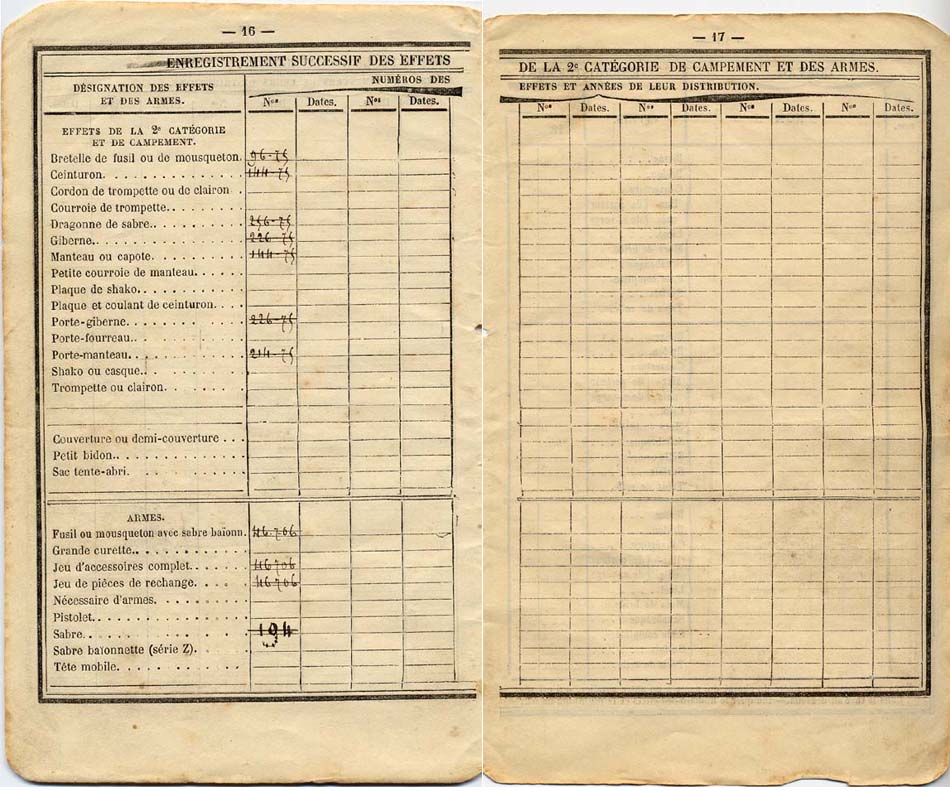 — 16 —
ENREGISTREMENT SUCCESSIF DES EFFETS
DÉSIGNATION DES EFFETS
ET DES ARMES.
NUMÉROS DES
Nos Dates. Nos Dates.
EFFETS DE LA 2e CATÉGORIE
ET DE CAMPEMENT.
Bretelle de fusil ou de mousqueton. 96-75
Ceinturon. 144-75
Cordon de trompette ou de clairon
Courroie de trompette.
Dragonne de sabre. 256-75
Giberne. 226-75
Manteau ou capote. 144-75
Petite courroie de manteau.
Plaque de shako.
Plaque et coulant de ceinturon.
Porte-giberne. 226-75
Porte-fourreau.
Porte-manteau. 214-75
Shako ou casque.
Trompette ou clairon.
Couverture ou demi-couverture
Petit bidon.
Sac tente-abri.
ARMES.
Fusil ou mousqueton avec sabre baïonn. 46706
Grande curette.
Jeu d'accessoires complet. 46706
Jeu de pièces de rechange. 46706
Nécessaire d'armes.
Pistolet.
Sabre. 194
Sabre baïonnette (série Z).
Tête mobile.
— 17 —
DE LA 2e CATÉGORIE DE CAMPEMENT ET DES ARMES.
EFFETS ET ANNÉES DE LEUR DISTRIBUTION.
Nos Dates. Nos Dates. Nos Dates. Nos Dates.